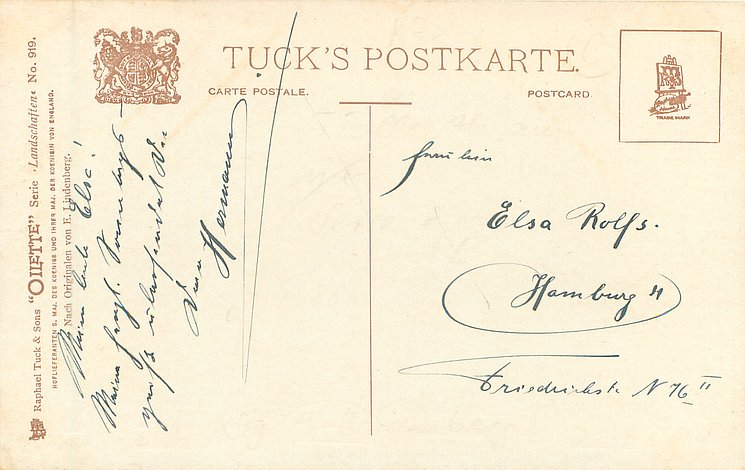 TUCK'S POSTKARTE.
CARTE POSTALE.
POSTCARD.
TRADE MARK
Raphael Tuck & Sons "OILETTE" Serie "Landschaften" No. 919.
HOFLIEFERANTEN S. MAJ. DES KOENIGS UND IHRER MAJ. DER KOENIGIN VON ENGLAND.
Nach Originalen von E. Lindenberg.
Meine liebe Elsa!
Sonntags-
Dir
Dein Hermann
Fräulein
Elsa Rolfs.
Hamburg 4
Friedrichstr. N 76 II